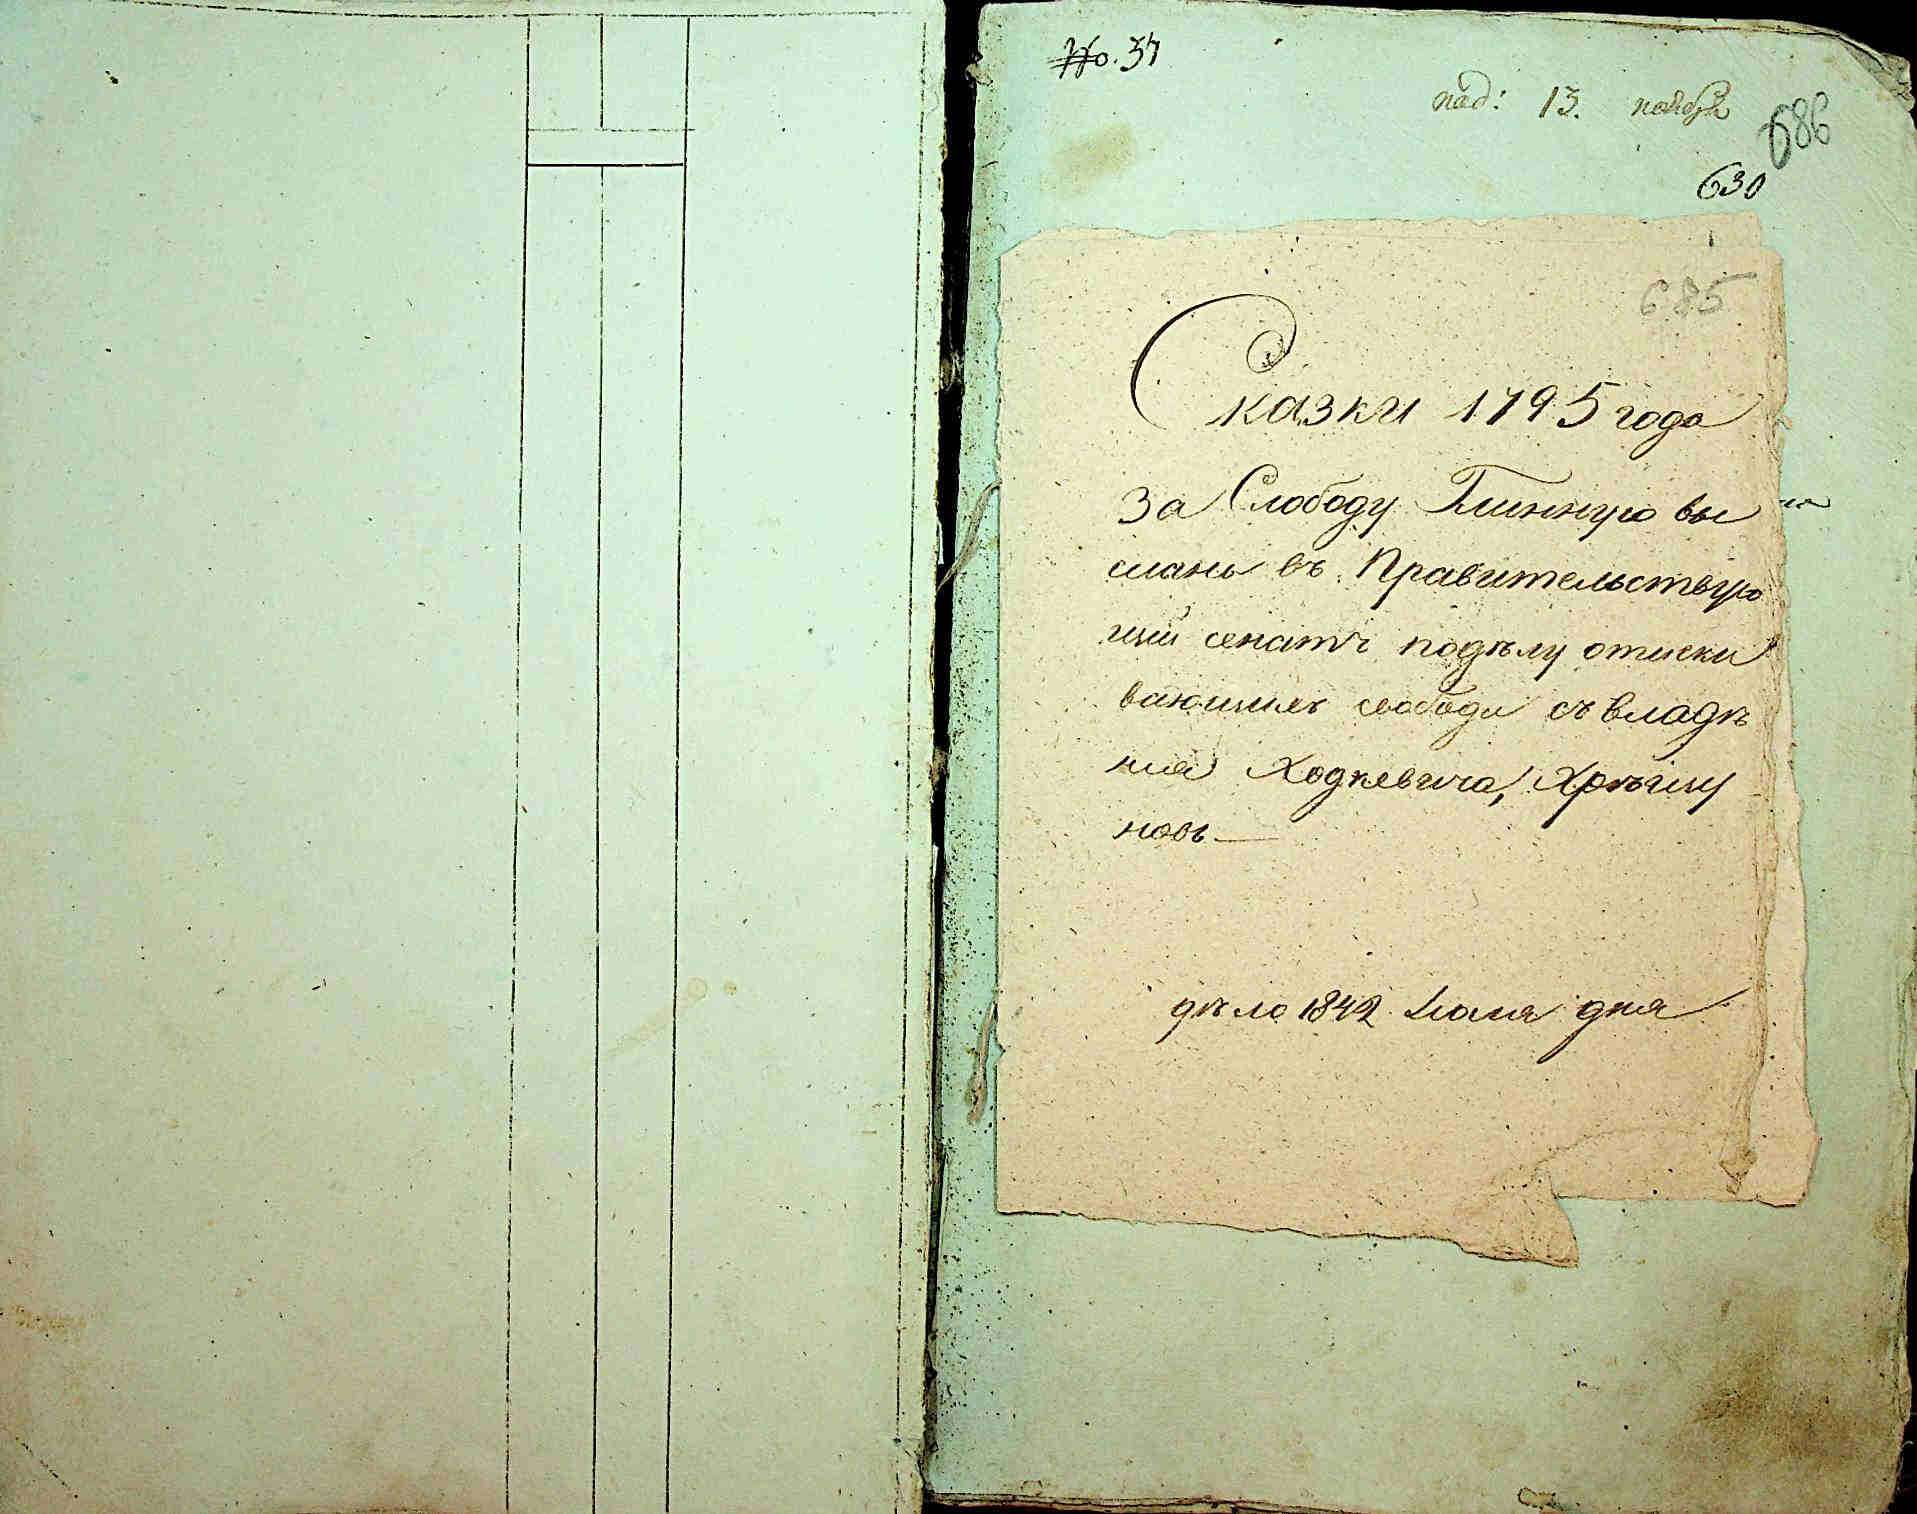 No. 37
под: 13. ноября
686
630
685
Сказки 1795 года
за Слободу Глинную вы
сланы въ Правительствую
щій сенатъ подѣлу отыски
вающихъ свободы съ владѣ
нія Ходкевича,
новъ
дѣло 1842 Маія дня